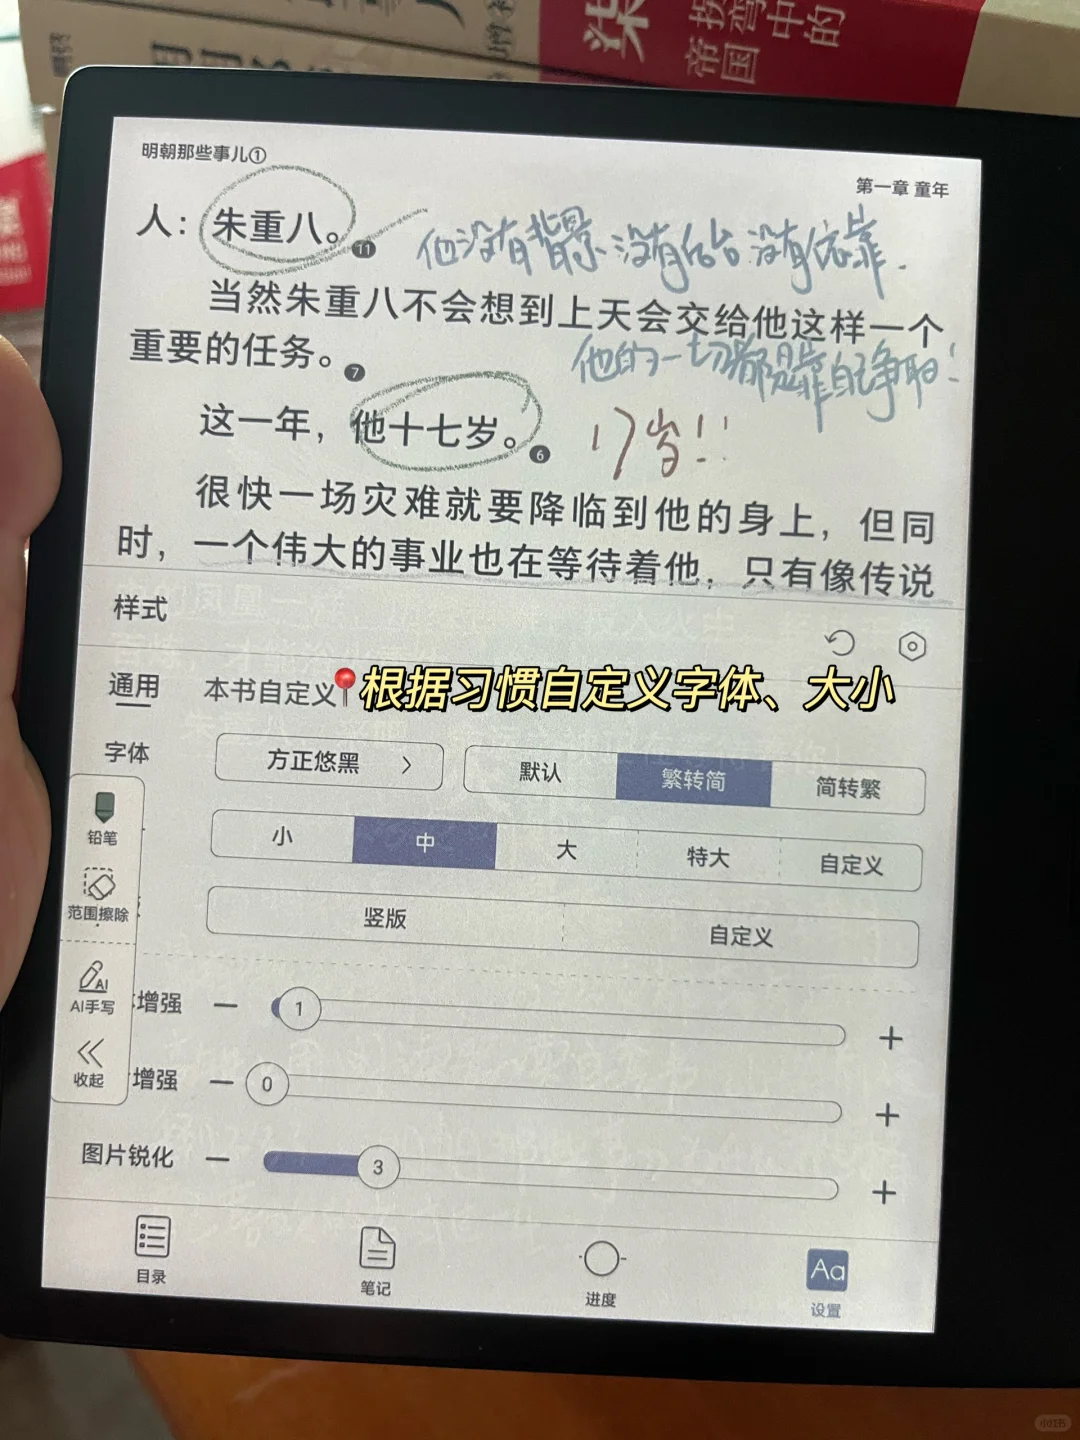 柒
拐弯中的
帝国
增补
明朝那些事儿①
第一章 童年
人：朱重八。⑪
他没有背景 没有后台 没有依靠.
当然朱重八不会想到上天会交给他这样一个
重要的任务。⑦
他的一切都只能靠自己争取！
这一年，他十七岁。⑥
17岁!!
很快一场灾难就要降临到他的身上，但同
时，一个伟大的事业也在等待着他，只有像传说
样式
通用 本书自定义
根据习惯自定义字体、大小
字体 方正悠黑 > 默认 繁转简 简转繁
小 中 大 特大 自定义
竖版 自定义
铅笔
范围擦除
AI手写
收起
增强 − 1 +
增强 − 0 +
图片锐化 − 3 +
目录 笔记 进度 Aa 设置